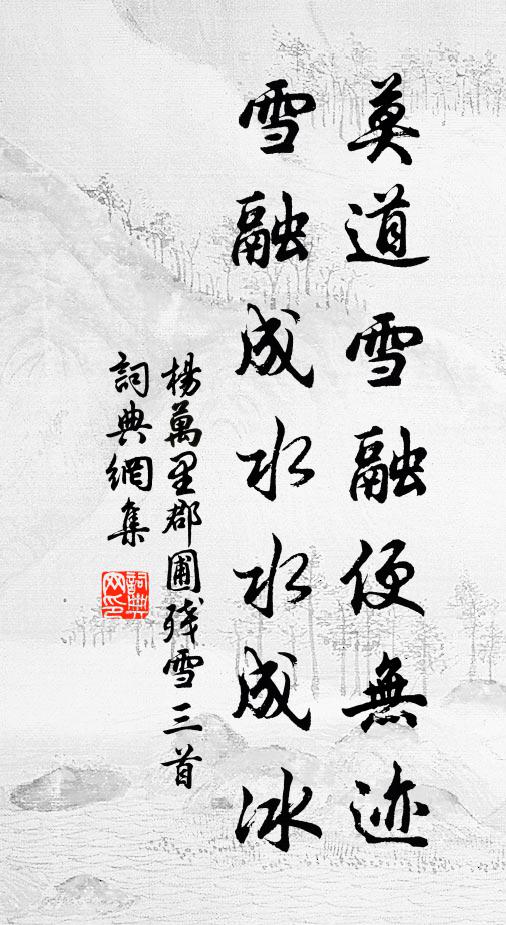 莫道雪融便無迹
雪融成水水成冰
楊萬里郡圃殘雪三首
詞典網集
詞典
网印